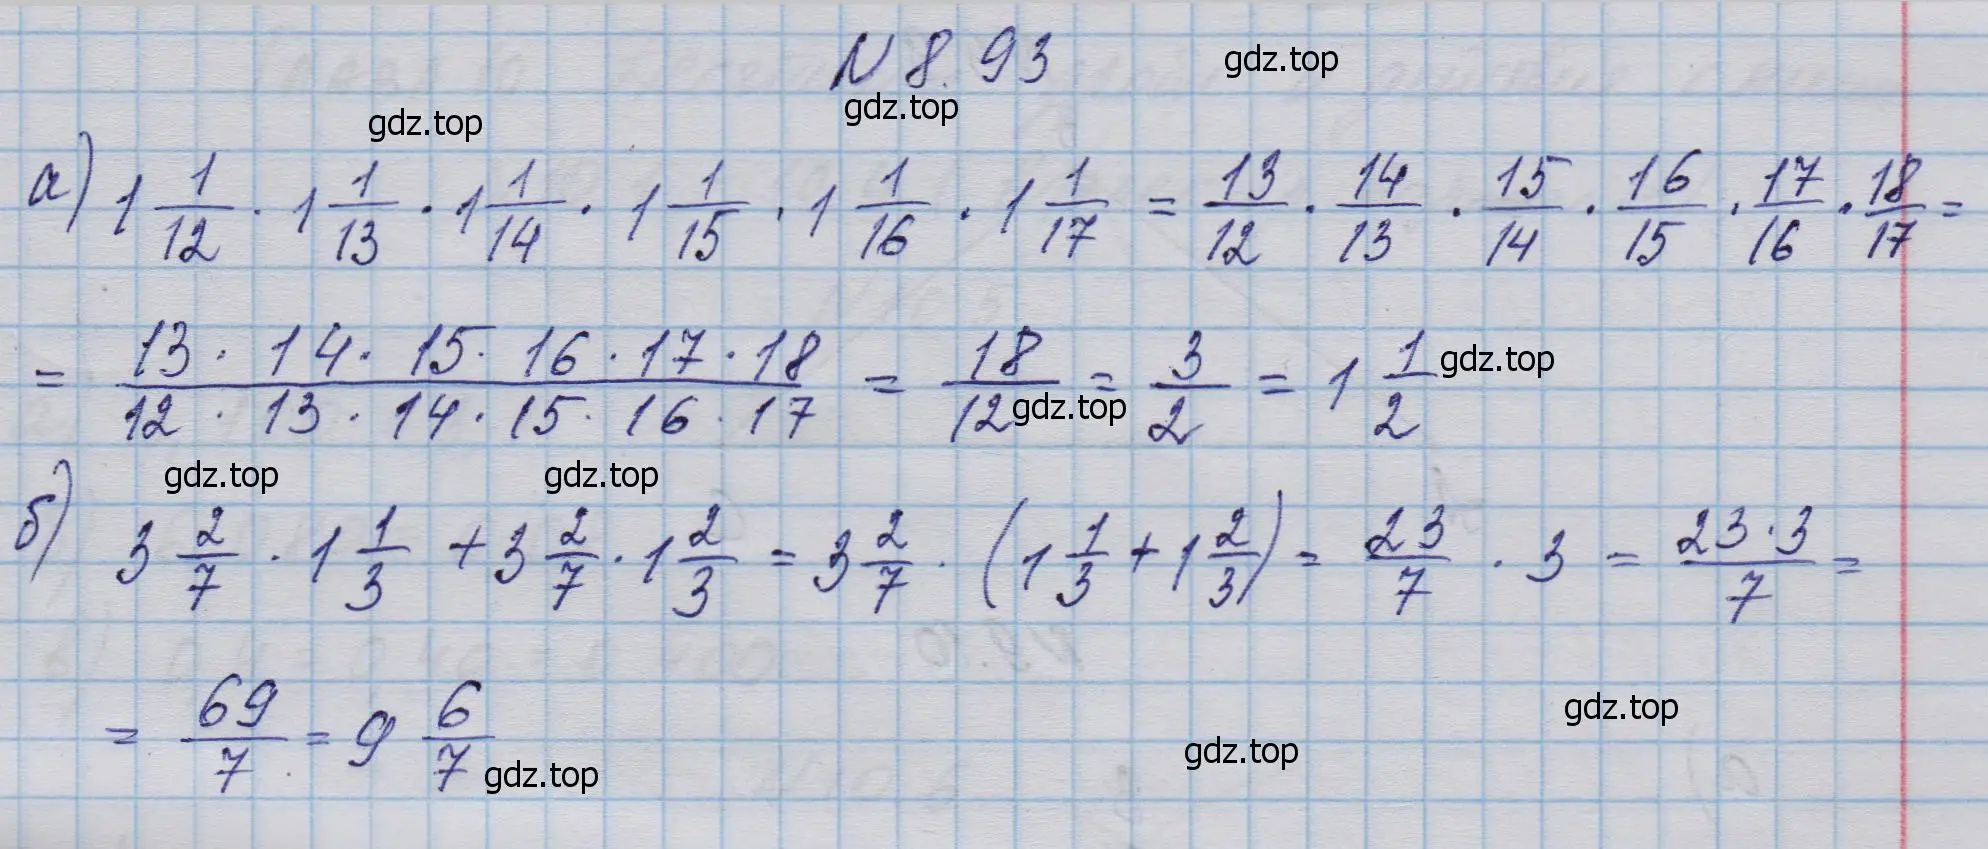 N 8.93
gdz.top
gdz.top
gdz.top
а) 1 1/12 · 1 1/13 · 1 1/14 · 1 1/15 · 1 1/16 · 1 1/17 = 13/12 · 14/13 · 15/14 · 16/15 · 17/16 · 18/17 =
= (13 · 14 · 15 · 16 · 17 · 18)/(12 · 13 · 14 · 15 · 16 · 17) = 18/12 = 3/2 = 1 1/2
gdz.top
gdz.top
gdz.top
gdz.top
б) 3 2/7 · 1 1/3 + 3 2/7 · 1 2/3 = 3 2/7 · (1 1/3 + 1 2/3) = 23/7 · 3 = (23 · 3)/7 =
= 69/7 = 9 6/7
gdz.top
gdz.top
gdz.top